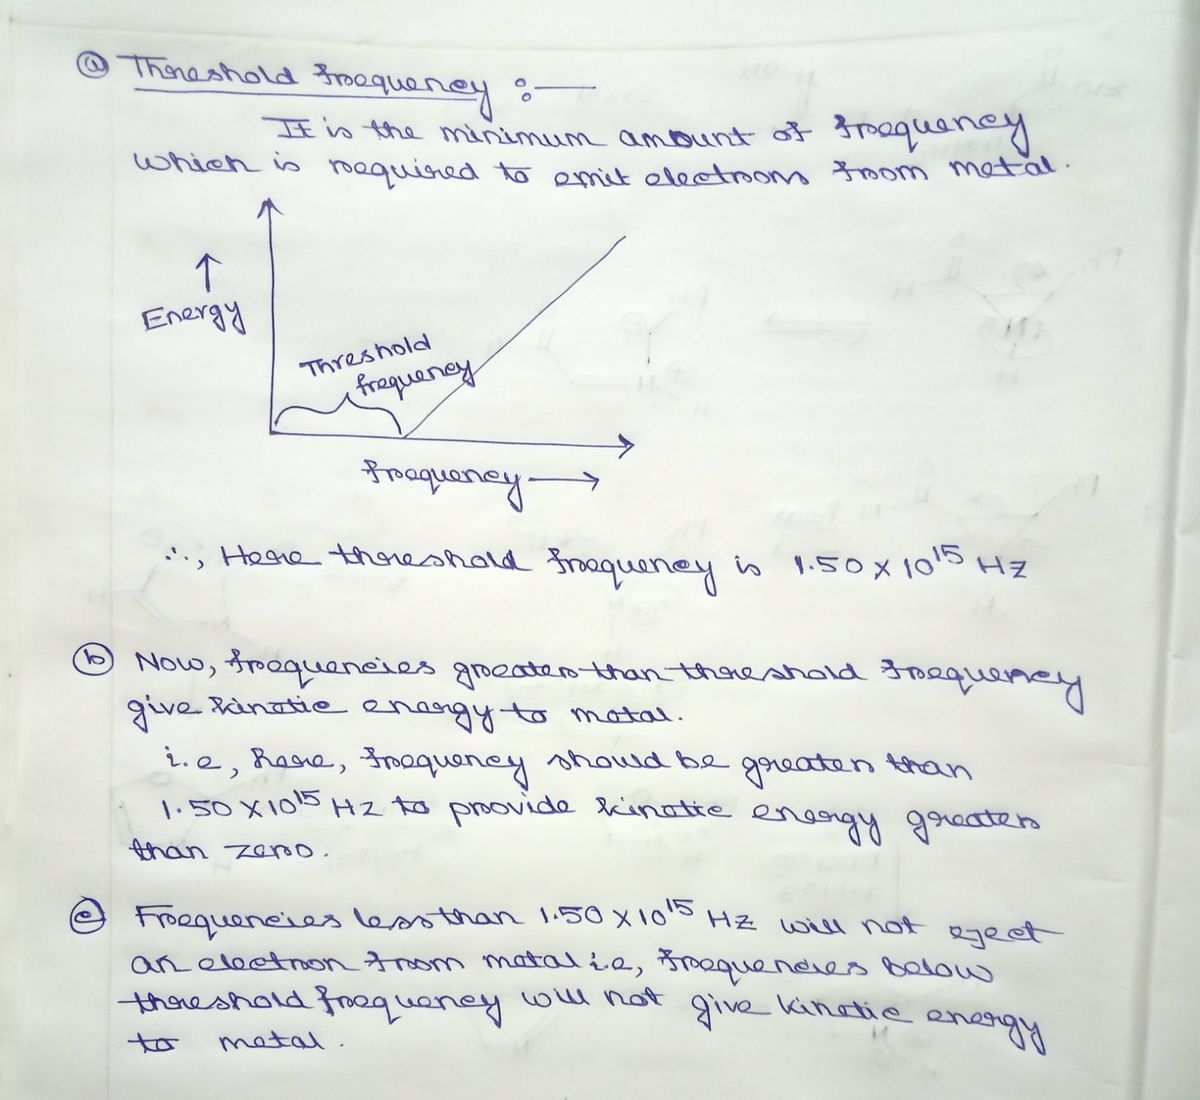 (a) Threshold frequency :—
It is the minimum amount of frequency
which is required to emit electrons from metal.
↑
Energy
Threshold
frequency
frequency →
∴, Here threshold frequency is 1.50 x 10¹⁵ Hz
(b) Now, frequencies greater than threshold frequency
give kinetic energy to metal.
i.e, here, frequency should be greater than
1.50 x 10¹⁵ Hz to provide kinetic energy greater
than zero.
(c) Frequencies less than 1.50 x 10¹⁵ Hz will not eject
an electron from metal i.e, frequencies below
threshold frequency will not give kinetic energy
to metal.